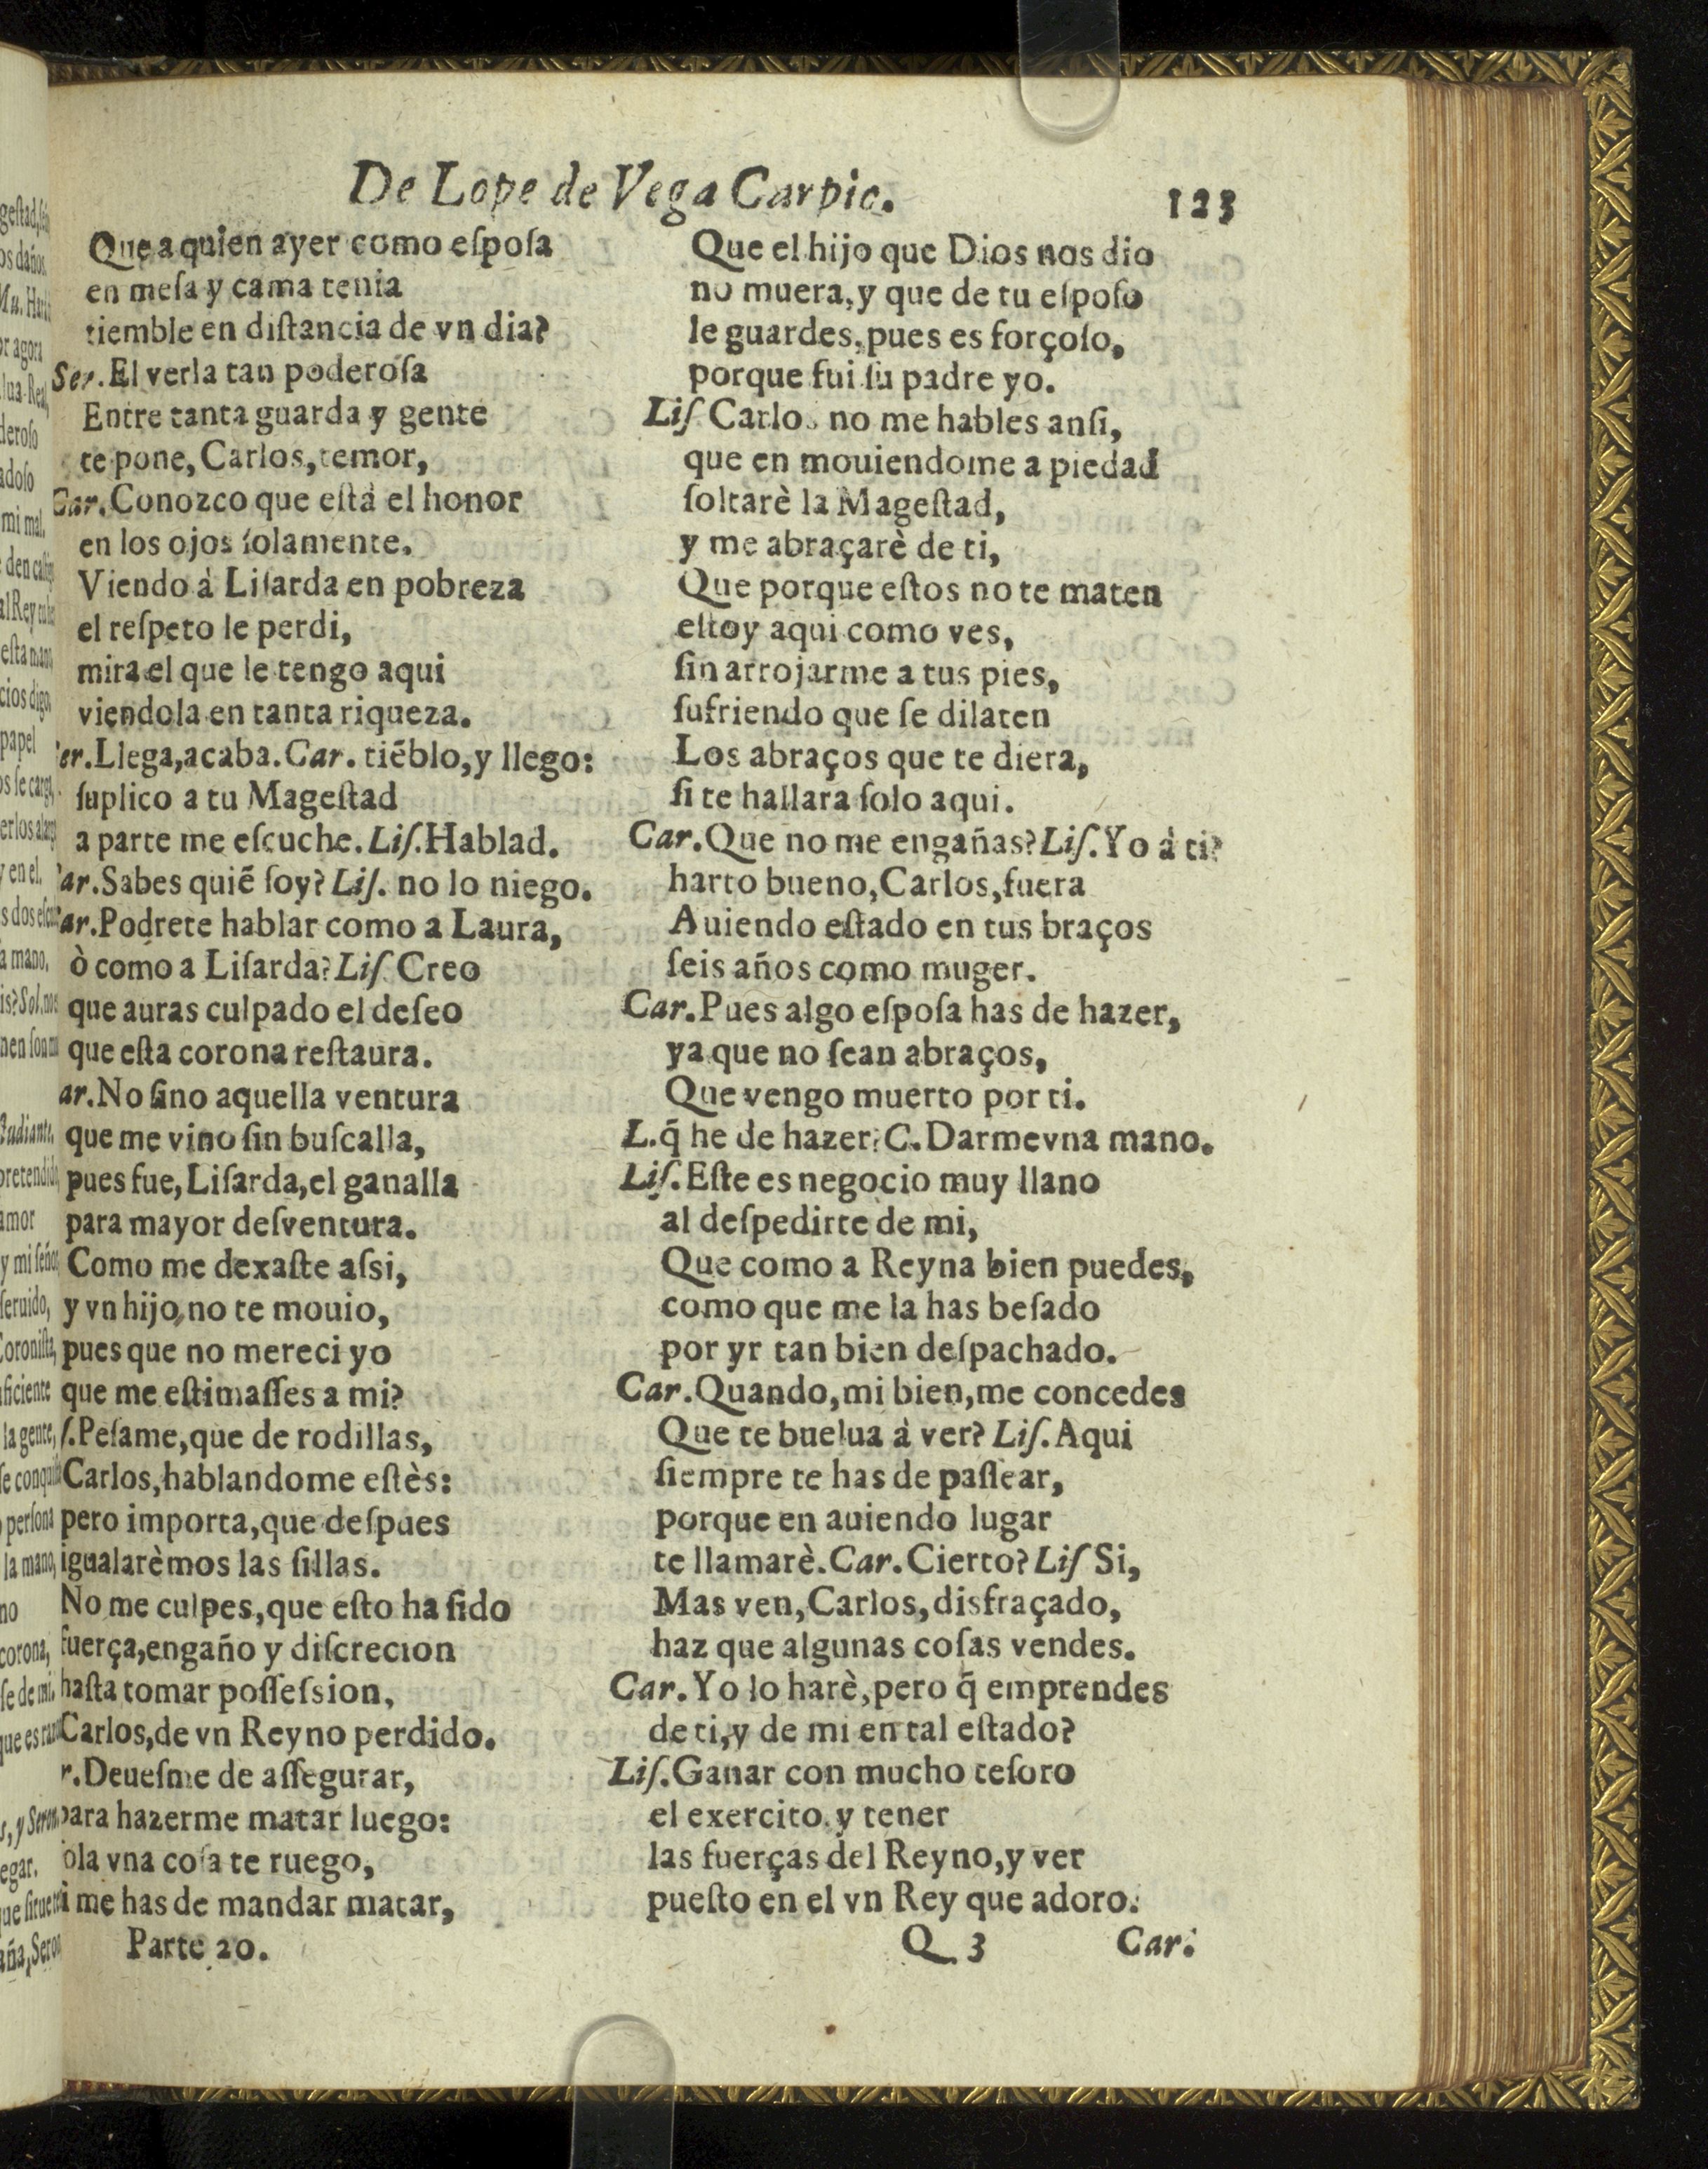 De Lope de Vega Carpio.
123
Que a quien ayer como eſpoſa
en meſa y cama tenia
tiemble en diſtancia de vn dia?
Ser. El verla tan poderoſa
Entre tanta guarda y gente
te pone, Carlos, temor,
Car. Conozco que eſtà el honor
en los ojos ſolamente.
Viendo à Liſarda en pobreza
el reſpeto le perdi,
mira el que le tengo aqui
viendola en tanta riqueza.
er. Llega, acaba. Car. tiẽblo, y llego:
ſuplico a tu Mageſtad
a parte me eſcuche. Liſ. Hablad.
ar. Sabes quiẽ ſoy? Liſ. no lo niego.
ar. Podrete hablar como a Laura,
ò como a Liſarda? Liſ Creo
que auras culpado el deſeo
que eſta corona reſtaura.
ar. No ſino aquella ventura
que me vino ſin buſcalla,
pues fue, Liſarda, el ganalla
para mayor deſventura.
Como me dexaſte aſsi,
y vn hijo, no te mouio,
pues que no mereci yo
que me eſtimaſſes a mi?
ſ. Peſame, que de rodillas,
Carlos, hablandome eſtès:
pero importa, que deſpues
igualarèmos las ſillas.
No me culpes, que eſto ha ſido
fuerça, engaño y diſcrecion
haſta tomar poſſeſsion,
Carlos, de vn Reyno perdido.
r. Deueſme de aſſegurar,
para hazerme matar luego:
ola vna coſa te ruego,
i me has de mandar matar,
Parte 20.
Que el hijo que Dios nos dio
no muera, y que de tu eſpoſo
le guardes, pues es forçoſo,
porque fui ſu padre yo.
Liſ Carlos no me hables anſi,
que en mouiendome a piedad
ſoltarè la Mageſtad,
y me abraçarè de ti,
Que porque eſtos no te maten
eſtoy aqui como ves,
ſin arrojarme a tus pies,
ſufriendo que ſe dilaten
Los abraços que te diera,
ſi te hallara ſolo aqui.
Car. Que no me engañas? Liſ. Yo à ti?
harto bueno, Carlos, fuera
Auiendo eſtado en tus braços
ſeis años como muger.
Car. Pues algo eſpoſa has de hazer,
ya que no ſean abraços,
Que vengo muerto por ti.
L. q̃ he de hazer? C. Darme vna mano.
Liſ. Eſte es negocio muy llano
al deſpedirte de mi,
Que como a Reyna bien puedes,
como que me la has beſado
por yr tan bien deſpachado.
Car. Quando, mi bien, me concedes
Que te buelua à ver? Liſ. Aqui
ſiempre te has de paſſear,
porque en auiendo lugar
te llamarè. Car. Cierto? Liſ Si,
Mas ven, Carlos, disfraçado,
haz que algunas coſas vendes.
Car. Yo lo harè, pero q̃ emprendes
de ti, y de mi en tal eſtado?
Liſ. Ganar con mucho teſoro
el exercito, y tener
las fuerças del Reyno, y ver
pueſto en el vn Rey que adoro.
Q 3
Car.